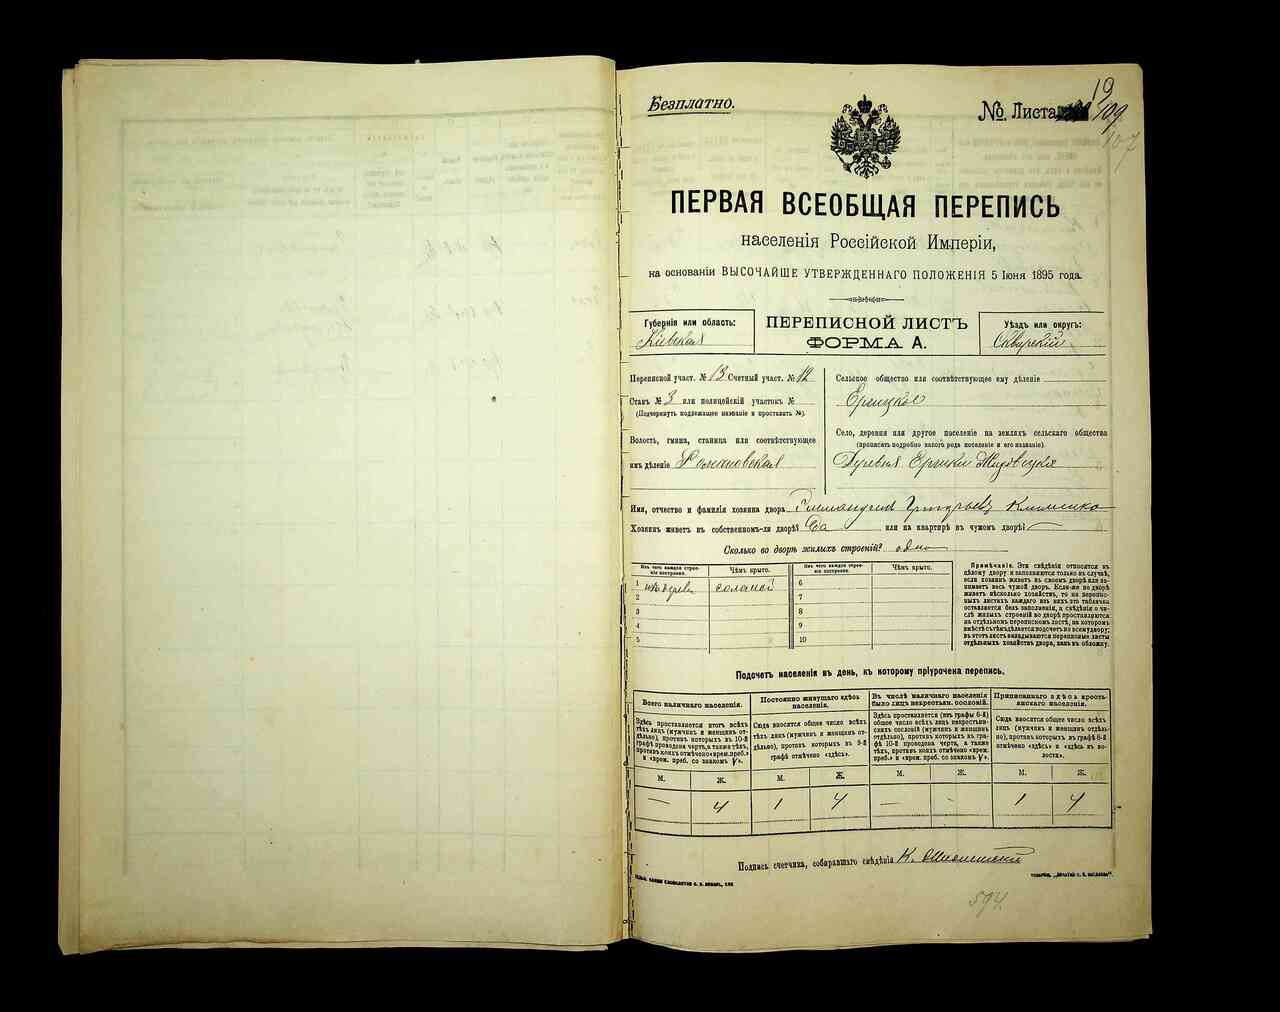 Безплатно.
№ Листа 19
109
107
ПЕРВАЯ ВСЕОБЩАЯ ПЕРЕПИСЬ
населенія Россійской Имперіи,
на основаніи ВЫСОЧАЙШЕ УТВЕРЖДЕННАГО ПОЛОЖЕНІЯ 5 Іюня 1895 года.
Губернія или область:
Кіевская
ПЕРЕПИСНОЙ ЛИСТЪ
ФОРМА А.
Уѣздъ или округъ:
Сквирскій
Переписной участ. № 13 Счетный участ. № 12
Станъ № 3 или полицейскій участокъ №
(Подчеркнуть подлежащее названіе и проставить №).
Волость, гмина, станица или соотвѣтствующее
имъ дѣленіе Романовская
Сельское общество или соотвѣтствующее ему дѣленіе
Ерчицкое
Село, деревня или другое поселеніе на земляхъ сельскаго общества
(прописать подробно какого рода поселеніе и его названіе).
Деревня Ерчики
Имя, отчество и фамилія хозяина двора Клименко
Хозяинъ живетъ въ собственномъ-ли дворѣ? Да или на квартирѣ въ чужомъ дворѣ? —
Сколько во дворѣ жилыхъ строеній? одно
Изъ чего каждое строеніе построено. Чѣмъ крыто. Изъ чего каждое строеніе построено. Чѣмъ крыто.
1 изъ дерева соломой 6
2 7
3 8
4 9
5 10
Примѣчаніе. Эти свѣдѣнія относятся къ
цѣлому двору и заполняются только въ случаѣ,
если хозяинъ живетъ въ своемъ дворѣ или занимаетъ
весь чужой дворъ. Если-же во дворѣ
живетъ нѣсколько хозяйствъ, то на переписныхъ
листахъ каждаго изъ нихъ эта табличка
оставляется безъ заполненія, а свѣдѣнія о числѣ
жилыхъ строеній во дворѣ проставляются
на отдѣльномъ переписномъ листѣ, на которомъ
вмѣстѣ съ тѣмъ дѣлается подсчетъ по всему двору;
въ этотъ листъ вкладываются переписные листы
отдѣльныхъ хозяйствъ двора, какъ въ обложку.
Подсчетъ населенія въ день, къ которому пріурочена перепись.
Всего наличнаго населенія.
Здѣсь проставляется итогъ всѣхъ
тѣхъ лицъ (мужчинъ и женщинъ отдѣльно),
противъ которыхъ въ 10-й
графѣ проведена черта, а также тѣхъ,
противъ коихъ отмѣчено «врем. преб.»
и «врем. преб. со знакомъ V».
Постоянно живущаго здѣсь населенія.
Сюда вносится общее число всѣхъ
тѣхъ лицъ (мужчинъ и женщинъ отдѣльно),
противъ которыхъ въ 9-й
графѣ отмѣчено «здѣсь».
Въ числѣ наличнаго населенія
было лицъ некрестьян. сословій.
Здѣсь проставляется (изъ графы 6-й)
общее число всѣхъ лицъ некрестьянскихъ
сословій (мужчинъ и женщинъ
отдѣльно), противъ которыхъ въ графѣ
10-й проведена черта, а также
тѣхъ, противъ коихъ отмѣчено «врем.
преб.» и «врем. преб. со знакомъ V».
Приписаннаго здѣсь крестьянскаго населенія.
Сюда вносится общее число всѣхъ
лицъ (мужчинъ и женщинъ отдѣльно),
противъ коихъ въ графѣ 8-й
отмѣчено «здѣсь» и «здѣсь въ волости».
М. Ж. М. Ж. М. Ж. М. Ж.
— 4 1 4 — - 1 4
Подпись счетчика, собиравшаго свѣдѣнія К.
594